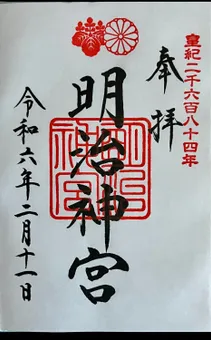 皇紀二千六百八十四年
奉拝
明治神宮
明治神宮
令和六年二月十一日